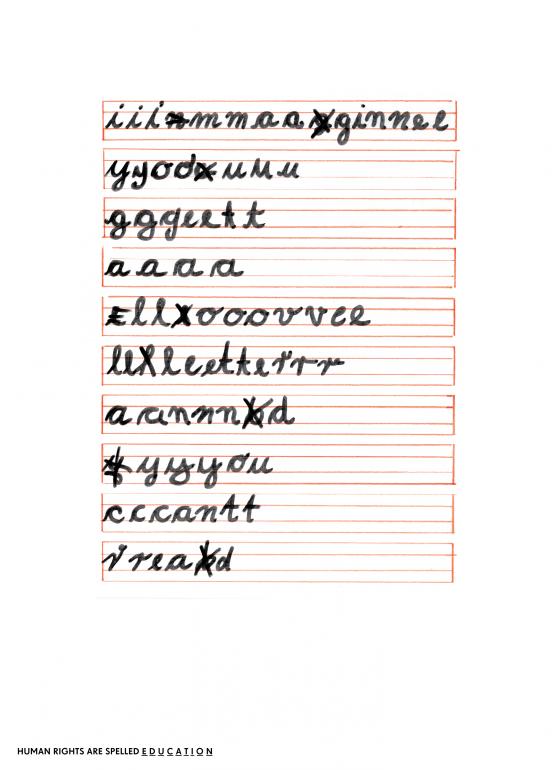 iiimmaaginnee
yyoouuu
gggeett
a a a a
llooovvee
lllleettterrrr
aannnnd
yyyyou
cccantt
rread
HUMAN RIGHTS ARE SPELLED EDUCATION